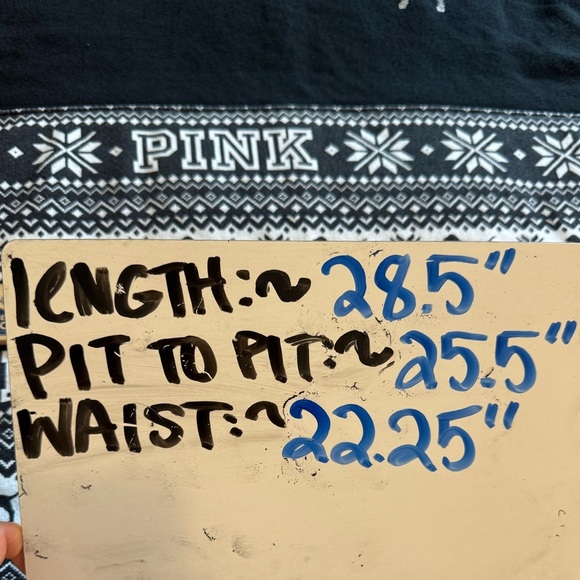 PINK
lENGTH:~ 28.5"
PIT TO PIT:~ 25.5"
WAIST:~ 22.25"